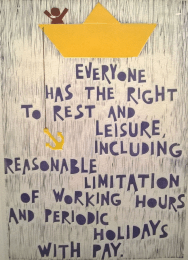 EVERYONE
HAS THE RIGHT
TO REST AND
LEISURE,
INCLUDING
REASONABLE
LIMITATION
OF WORKING HOURS
AND PERIODIC
HOLIDAYS
WITH PAY.